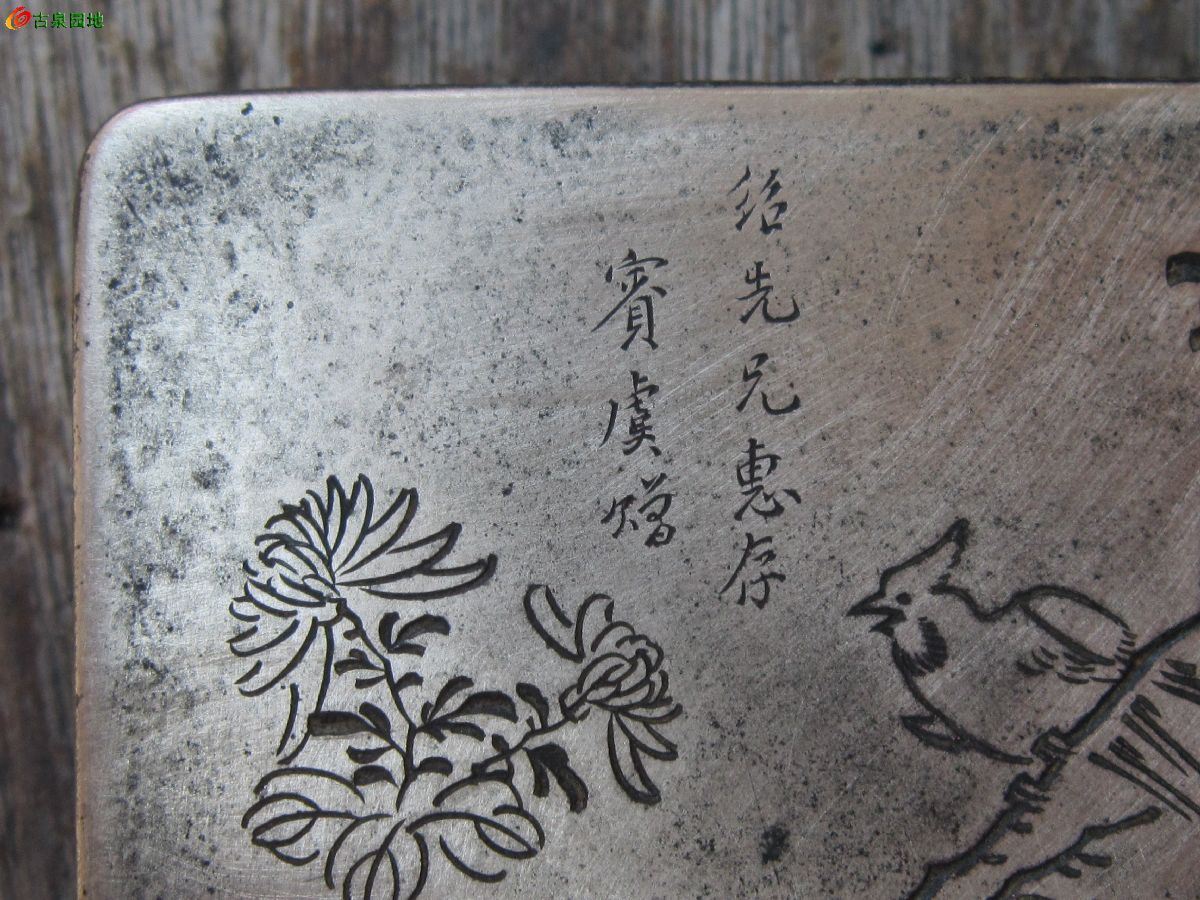 绍先兄惠存
賓虞贈
古泉园地